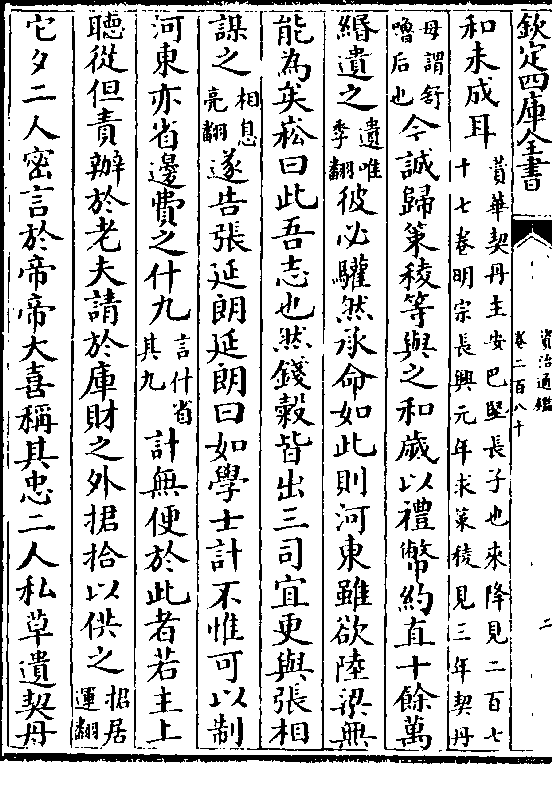 欽定四庫全書
資治通鑑
卷二百八十
二
和未成耳
賛華契丹主安巴堅長子也來降見二百七
十七卷明宗長興元年求策稜見三年契丹
母謂舒
嚕后也
今誠歸策稜等與之和歲以禮幣約直十餘萬
緡遺之
遺唯
季翻
彼必驩然承命如此則河東雖欲陸梁無
能為矣崧曰此吾志也然錢穀皆出三司宜更與張相
謀之
相息
亮翻
遂告張延朗延朗曰如學士計不惟可以制
河東亦省邊費之什九
言什省
其九
計無便於此者若主上
聽從但責辦於老夫請於庫財之外捃拾以供之
捃居
運翻
它夕二人密言於帝帝大喜稱其忠二人私草遺契丹